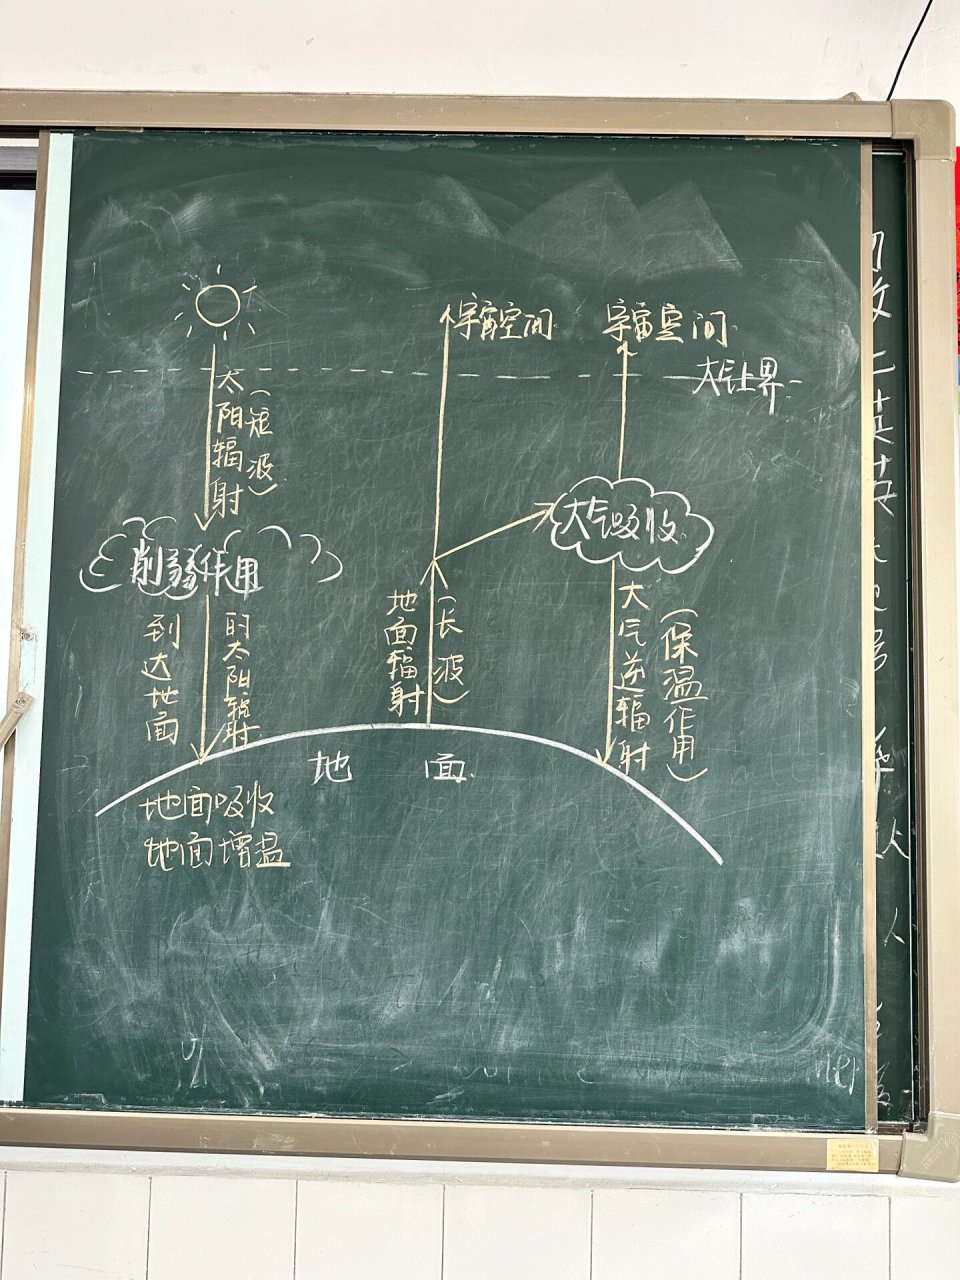 宇宙空间
宇宙空间
大气上界
太阳辐射
(短波)
削弱作用
大气吸收
到达地面
的太阳辐射
地面辐射
(长波)
大气逆辐射
(保温作用)
地面
地面吸收
地面增温